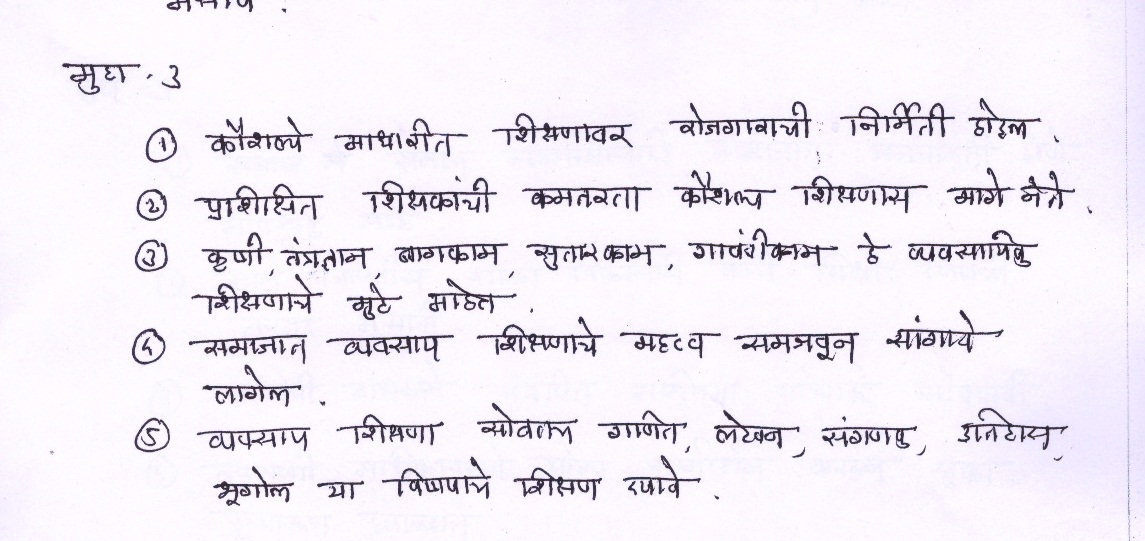 मुद्दा . 3
① कौशल्ये आधारीत शिक्षणावर रोजगाराची निर्मिती होईल .
② प्रशिक्षित शिक्षकांची कमतरता कौशल्य शिक्षणास मागे नेते .
③ कृषी, तंत्रज्ञान, बागकाम, सुतारकाम गावंडीकाम हे व्यवसायिक
शिक्षणाचे मुद्दे आहेत .
④ समाजात व्यवसाय शिक्षणाचे महत्व समजवून सांगावे
लागेल .
⑤ व्यवसाय शिक्षणा सोबतच गणित, लेखन, संगणक, इतिहास,
भूगोल या विषयाचे शिक्षण द्यावे .